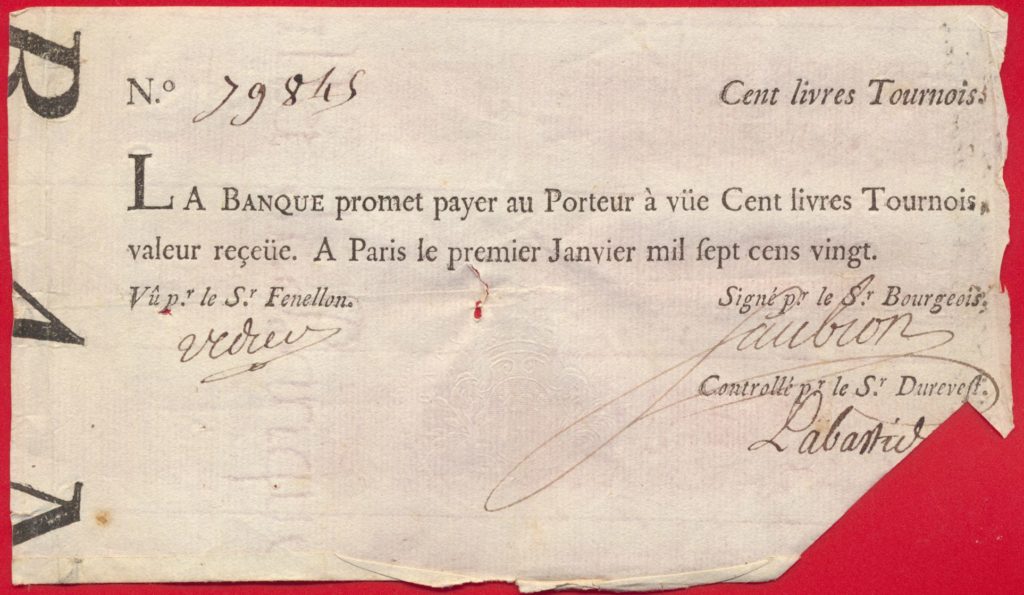 N.º 79845 Cent livres Tournois.
LA BANQUE promet payer au Porteur à vüe Cent livres Tournois,
valeur reçeüe. A Paris le premier Janvier mil ſept cens vingt.
Vû p.r le S.r Fenellon. Signé p.r le S.r Bourgeois.
Controllé p.r le S.r Durevest.
Labastid